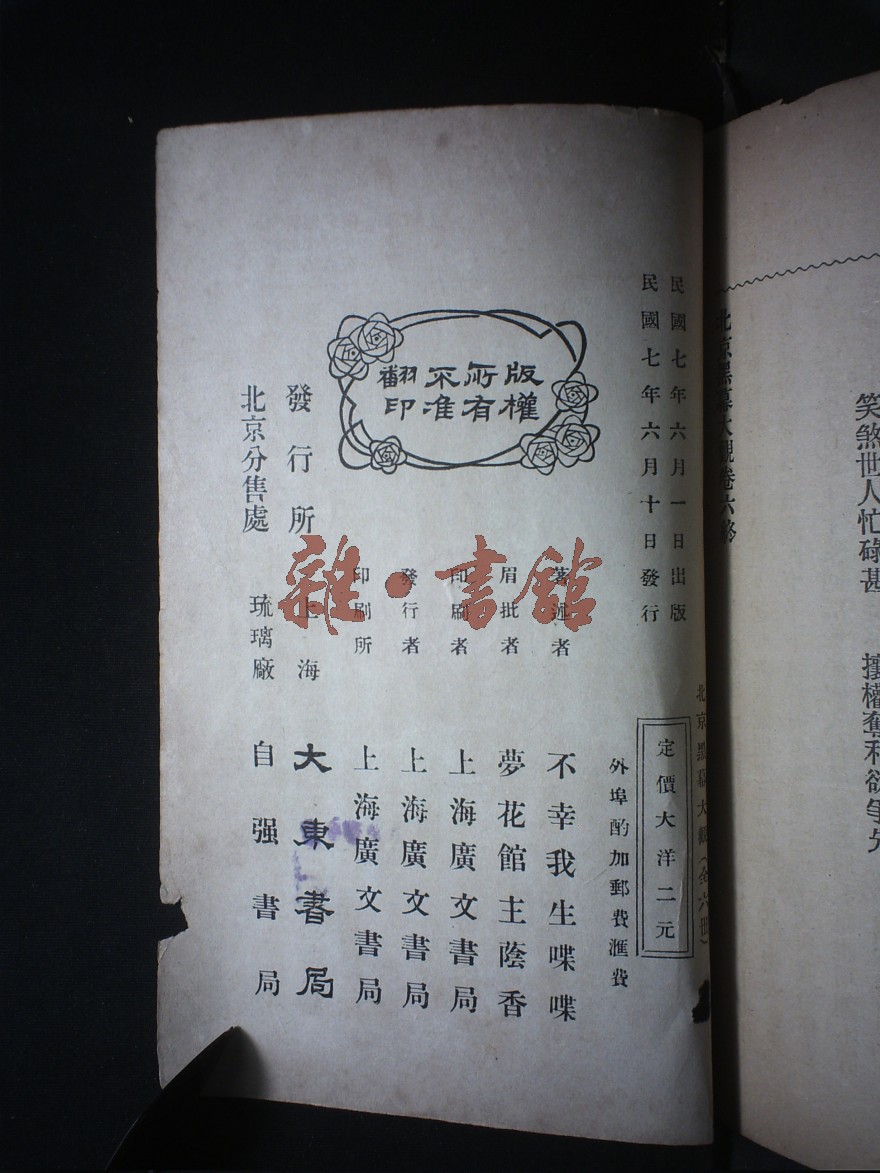 笑煞世人忙碌甚　攘權奪利欲爭先
北京黑幕大觀卷六終
北京黑幕大觀（全六冊）
民國七年六月一日出版
民國七年六月十日發行
定價大洋二元
外埠酌加郵費匯費
版權
所有
不准
翻印
著述者　不幸我生喋喋
眉批者　夢花館主蔭香
印刷者　上海廣文書局
發行者　上海廣文書局
印刷所　上海廣文書局
發行所　上海　大東書局
北京分售處　琉璃廠　自强書局
雜·書館